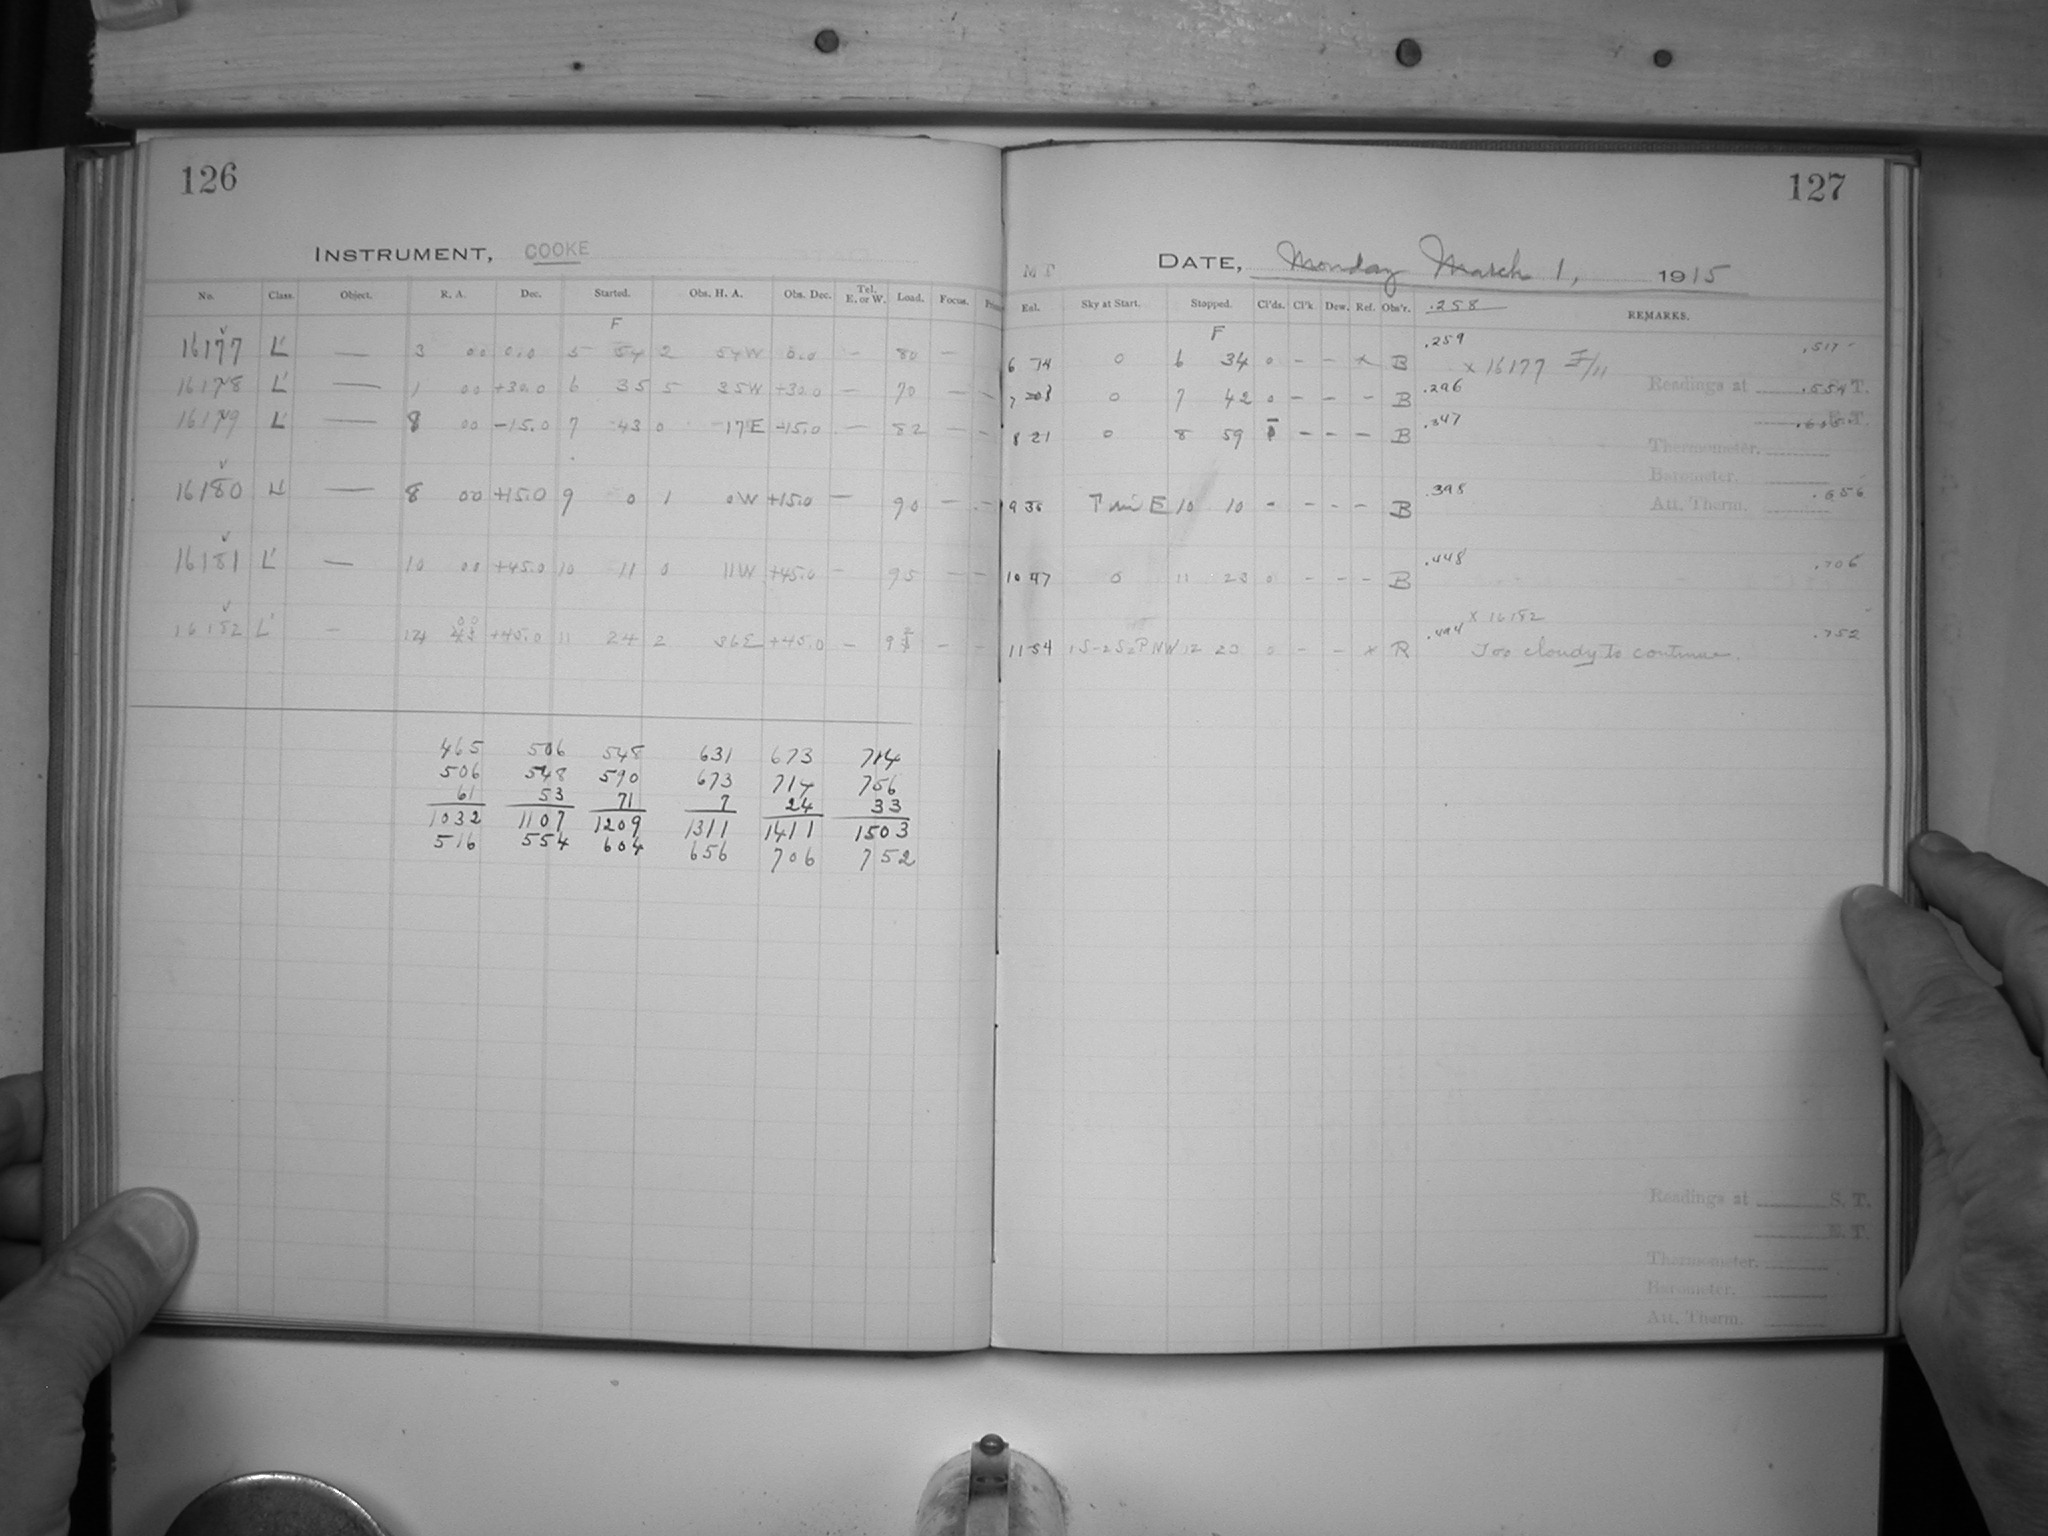 126
INSTRUMENT, COOKE
No. Class. Object. R. A. Dec. Started. Obs. H. A. Obs. Dec. Tel. E. or W. Load. Focus.
F
16177 L' — 3 00 0.0 5 54 2 54W 0.0 — 80 —
16178 L' — 1 00 +30.0 6 35 5 35W +30.0 — 70 — —
16179 L' — 8 00 -15.0 7 43 0 -17E -15.0 — 82 — —
16180 L' — 8 00 +15.0 9 0 1 0W +15.0 — 90 — —
16181 L' — 10 00 +45.0 10 11 0 11W +45.0 — 95 — —
16182 L' — +45.0 11 24 2 36E +45.0 — — —
465 506 548 631 673 714
506 548 590 673 714 756
61 53 71 7 24 33
1032 1107 1209 1311 1411 1503
516 554 604 656 706 752
127
M T
DATE, Monday March 1, 1915
Exl. Sky at Start. Stopped. Cl'ds. Cl'k. Dew. Ref. Obs'r. .258 REMARKS.
F
6 74 0 6 34 0 — — x B .259 x 16177 F/11
7 0 7 42 0 — — — B .296 Readings at .554 S. T.
8 21 0 8 59 — — — B .347 E. T.
Thermometer.
Barometer.
9 35 E 10 10 — — — — B .398 Att. Therm. .656
10 47 0 11 23 0 — — — B .448 .706
x 16182
11 54 1S-2S2PNW 12 23 0 — — x R .494 Too cloudy to continue. .752
Readings at S. T.
E. T.
Thermometer.
Barometer.
Att. Therm.